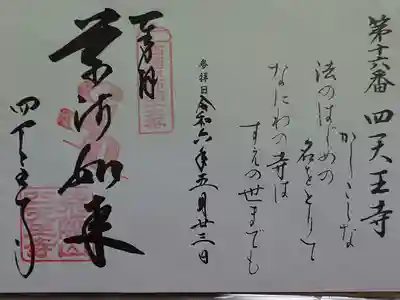 第十六番 四天王寺
かしこしな
法のはじめの
名をとりて
なにわの寺は
すえの世までも
参拝日 令和六年五月廿三日
奉拝
薬師如来
四天王寺